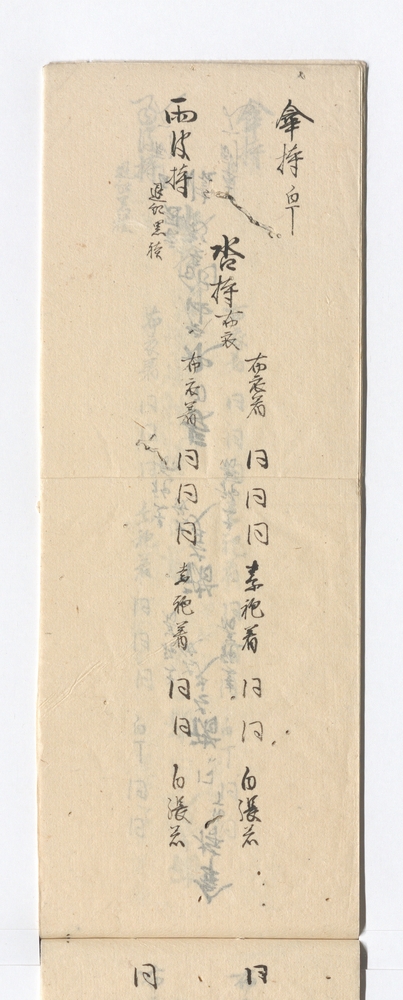 傘持 白丁
沓持 布衣
雨皮持 退紅 黒袴
布衣着
同
同
同
素袍着
同
同
白張着
同
布衣着
同
同
同
素袍着
同
同
白張着
同